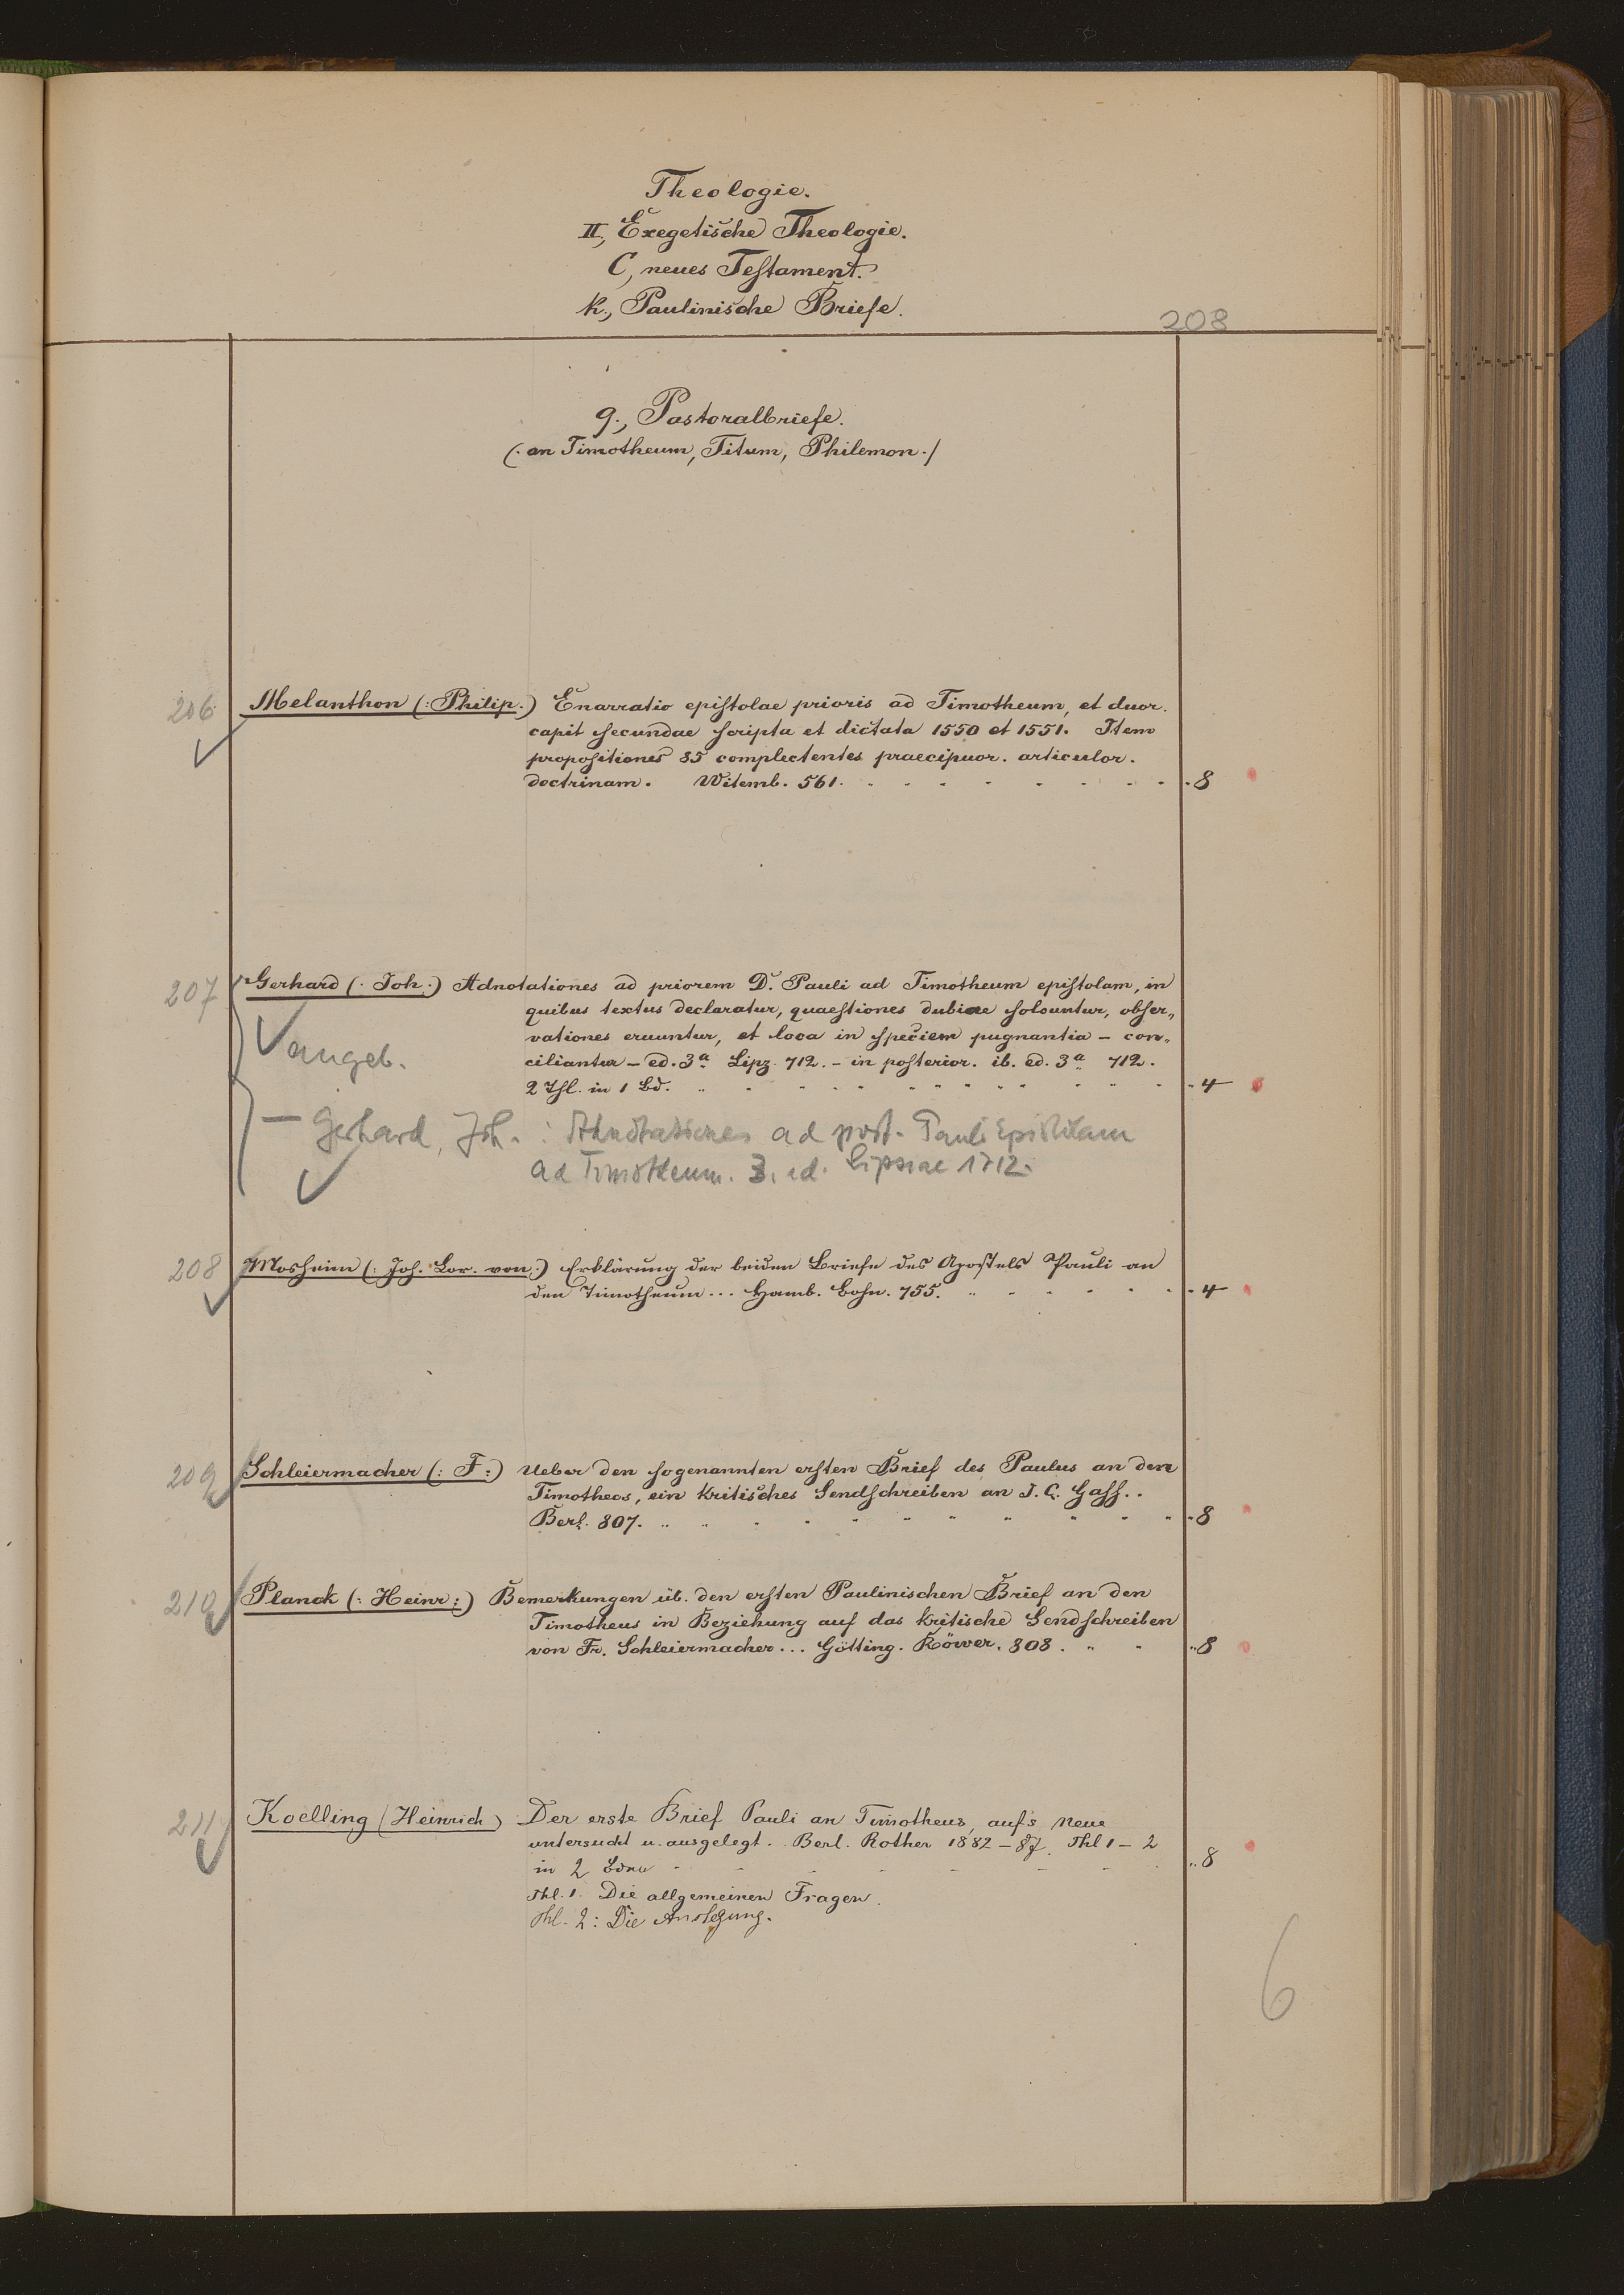 Theologie.
II, Exegetische Theologie.
C, neues Testament.
k., Paulinische Briefe.
208
g., Pastoralbriefe.
(: an Timotheum, Titum, Philemon ./
206 Melanthon (: Philip.) Enarratio epistolae prioris ad Timotheum, et duor.
capit secundae scripta et dictata 1550 et 1551. Item
propositiones 85 complectentes praecipuor. articulor.
doctrinam. Witemb. 561. 8
207 Gerhard (. Joh.) Adnotationes ad priorem D. Pauli ad Timotheum epistolam, in
quibus textus declaratur, quaestiones dubiae solvuntur, obser„
vationes eruuntur, et loca in speciem pugnantia – con„
angeb.
ciliantur – ed. 3a. Lipz. 712. – in posterior. ib. ed. 3a 712.
2 Thl. in 1 Bd. 4
– Gerhard, Joh. : Adnotationes ad post. Pauli Epistolam
ad Timotheum. 3. ed. Lipsiae 1712.
208 Mosheim (: Joh. Lor. von.) Erklärung der beiden Briefe des Apostels Pauli an
den Timotheum... Hamb. Bohn. 755. 4
209 Schleiermacher (: F:) Ueber den sogenannten ersten Brief des Paulus an den
Timotheos, ein kritisches Sendschreiben an J. C. Gass..
Berl. 807. 8
210 Planck (: Heinr:) Bemerkungen üb. den ersten Paulinischen Brief an den
Timotheus in Beziehung auf das kritische Sendschreiben
von Fr. Schleiermacher... Götting. Röwer. 808. 8
211 Koelling (Heinrich) Der erste Brief Pauli an Timotheus, auf's Neue
untersucht u. ausgelegt. . Berl. Rother 1882 – 87. Thl 1 – 2
in 2 Bdn 8
Thl. 1. Die allgemeinen Fragen.
Thl. 2: Die Auslegung.
6